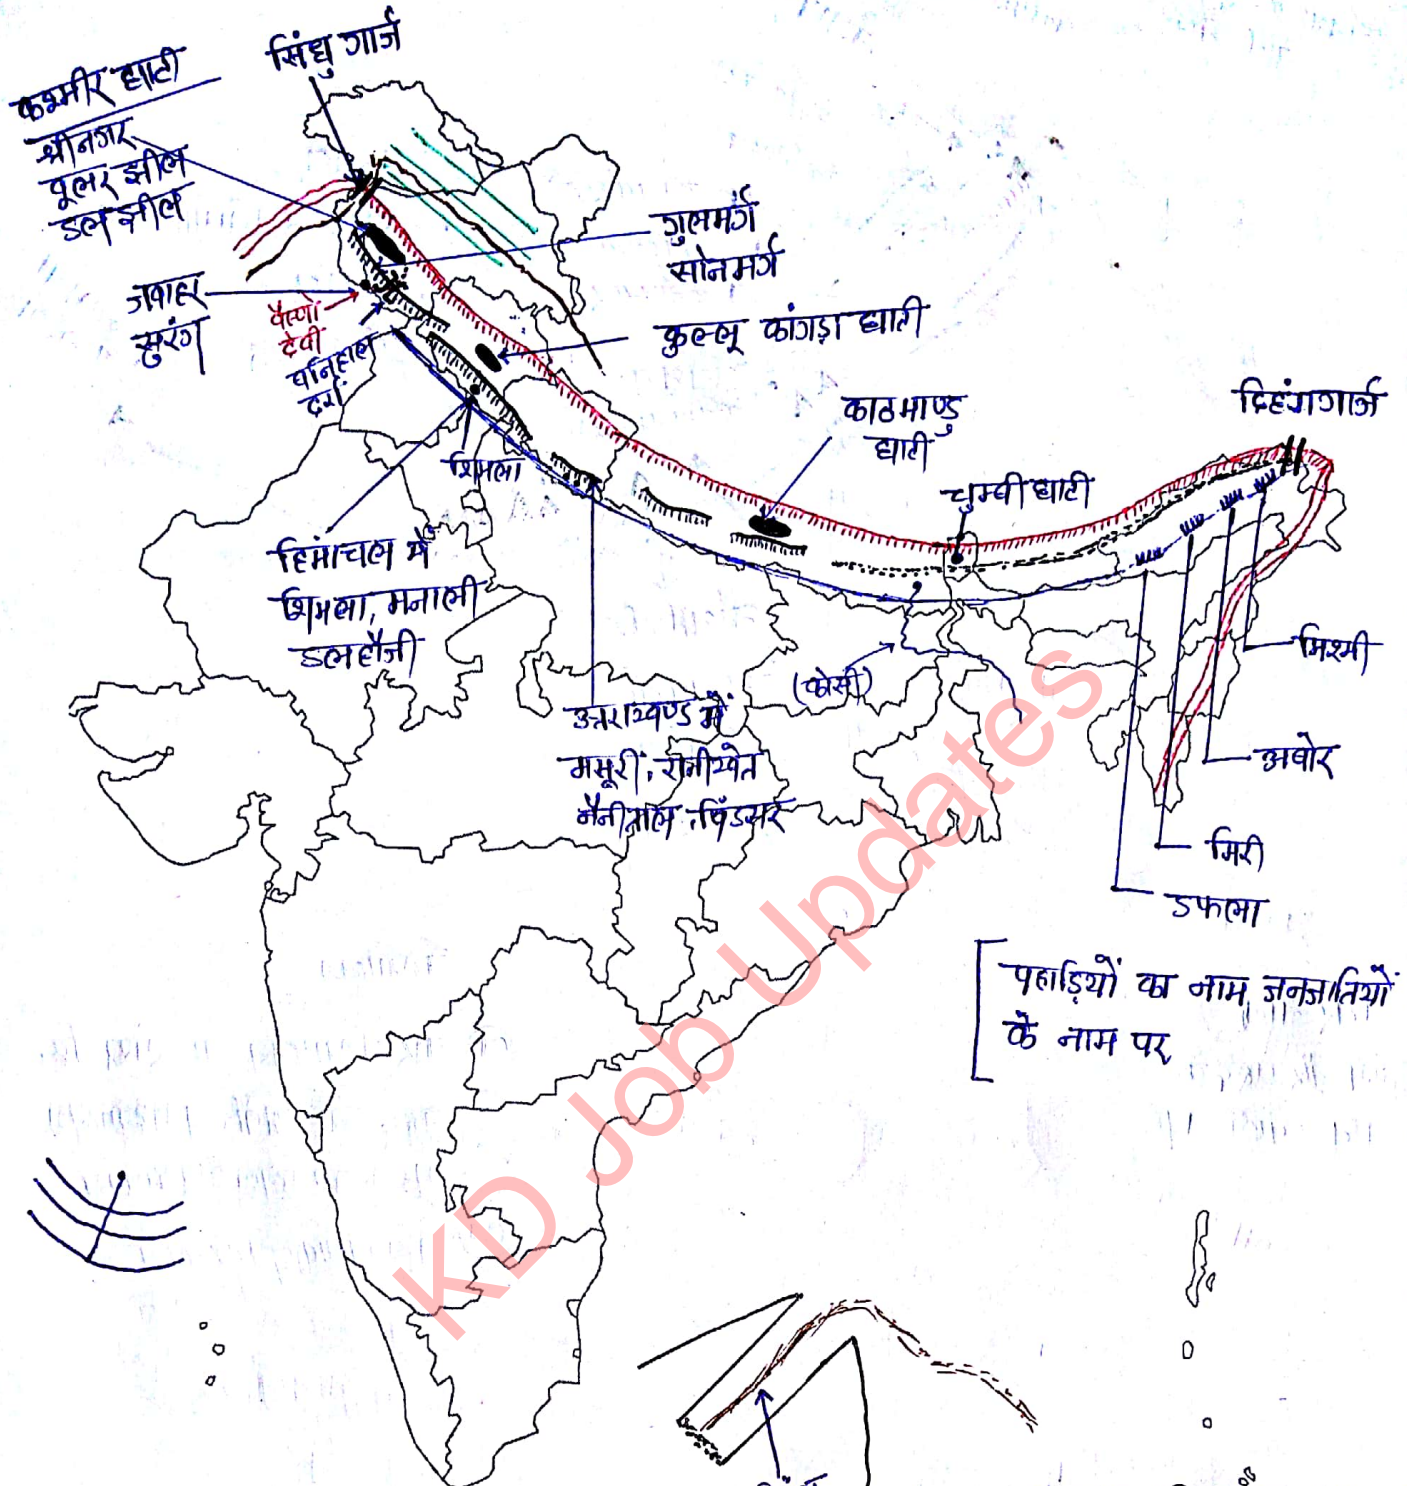 सिंधु गार्ज
कश्मीर घाटी
श्रीनगर
वूलर झील
डल झील
गुलमर्ग
सोनमर्ग
जवाहर
सुरंग
वैष्णों
देवी
बनिहाल
दर्रा
कुल्लू कांगड़ा घाटी
काठमाण्डु
घाटी
दिहंगगार्ज
शिमला
चुम्बी घाटी
हिमांचल में
शिमला, मनाली
डलहौजी
(कोसी)
मिश्मी
उत्तराखण्ड में
मसूरी, रानीखेत
नैनीताल,
अबोर
मिरी
डफला
पहाड़ियों का नाम जनजातियों
के नाम पर
KD Job Updates